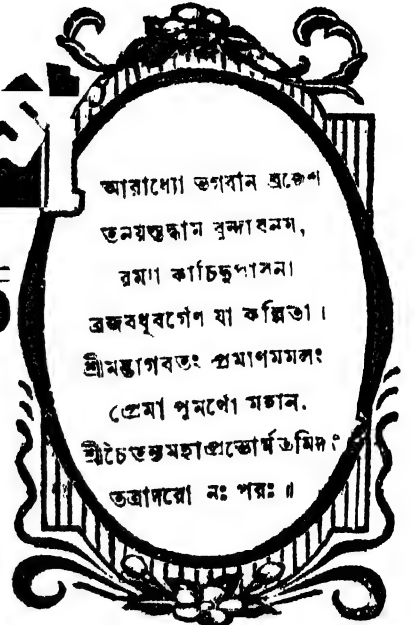 আরাধ্যো ভগবান ব্রজেশ
তনয়স্তদ্ধাম বৃন্দাবনম,
রম্যা কাচিদুপাসনা
ব্রজবধূবর্গেণ যা কল্পিতা ।
শ্রীমদ্ভাগবতং প্রমাণমমলং
প্রেমা পুমর্থো মহান.
শ্রীচৈতন্যমহাপ্রভোর্মতমিদং
তত্রাদরো নঃ পরঃ ॥